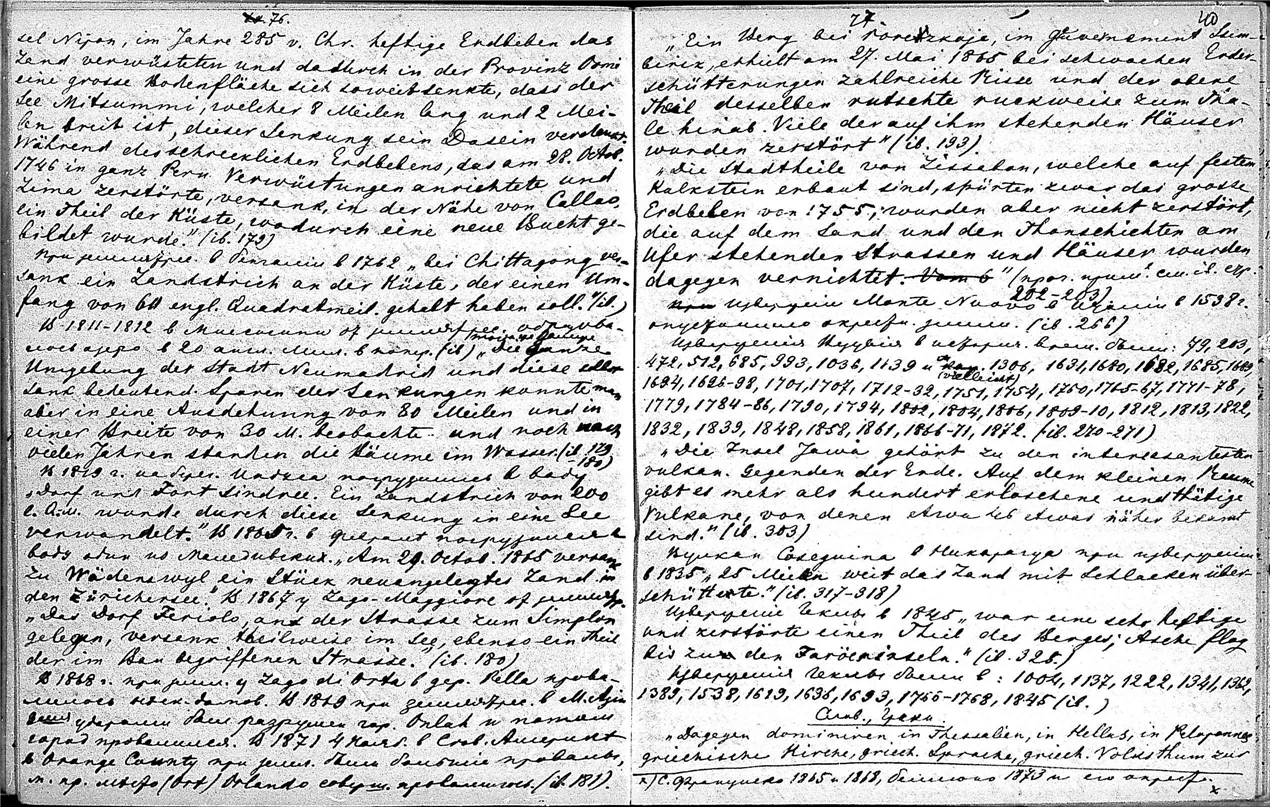 76.
sel Nipon, im Jahre 285 v. Chr. heftige Erdbeben das
Land verwüsteten und dadurch in der Provinz Oomi
eine grosse Bodenfläche sich soweit senkte, dass der
See Mitsummi, welcher 8 Meilen lang und 2 Mei-
len breit ist, dieser Senkung sein Dasein verdankt.
Während des schrecklichen Erdbebens, das am 28. Octob.
1746 in ganz Peru Verwüstungen anrichtete und
Lima zerstörte, versank, in der Nähe von Callao,
ein Theil der Küste, wodurch eine neue Bucht ge-
bildet wurde." (ib. 179)
При землетряс. в Бенгалии в 1762 „bei Chittagong ver-
sank ein Landstrich an der Küste, der einen Um-
fang von 60 engl. Quadratmeil. gehalt haben soll." (ib.)
В 1811-1812 в Миссисипи от землетряс. образова-
лось озеро в 20 англ. мил. в попер. (ib.) „Die ganze
Umgebung der Stadt Neumadrid und diese selbst
sank bedeutend. Spuren der Senkungen konnte man
aber in eine Ausdehnung von 80 Meilen und in
einer Breite von 30 M. beobachte- und noch nach
vielen Jahren standen die Bäume im Wasser. (ib. 179
180)
В 1819 г. на берег. Индуса погрузились в воду
„Dorf und Fort Sindree. Ein Landstrich von 200
wurde durch diese Senkung in eine See
verwandelt." В 1865 г. в феврале погрузился в
воду один из Маледивских. „Am 29. Octob. 1865 versank
zu Wädenswyl ein Stück neuangelegtes Land in
den Zürichersee." В 1867 у Lago-Maggiore от землетр.
„Das Dorf Feriolo, an der Strasse zum Simplon
gelegen, versank theilweise im See, ebenso ein Theil
der im Bau begriffenen Strasse." (ib. 180)
В 1868 г. при земл. у Lago di Orta в дер. Pella прова-
лилось неск. домов. В 1869 при землетряс. в М. Азии
ударами был разрушен гор. Onlah и потом
город провалился. В 1871 4 в Сев. Америке
в Orange County при земл. были большие провалы,
н. пр. место (Ort) Orlando соверш. провалилось. (ib. 181).
77.
40
„Ein Berg bei Poretzkoje, im Guvernement Sim-
birsk, erhielt am 27. Mai 1865 bei schwachen Erder-
schütterungen zahlreiche Risse und der obere
Theil desselben rutschte ruckweise zum Tha-
le hinab. Viele der auf ihm stehenden Häuser
wurden zerstört" (ib. 193)
„Die Stadtheile von Lissabon, welche auf festem
Kalkstein erbaut sind, spürten zwar das grosse
Erdbeben von 1755, wurden aber nicht zerstört,
die auf dem Sand und den Thonschichten am
Ufer stehenden Strassen und Häuser wurden
dagegen vernichtet. Vom 6" (проч. прим. см. ib. стр.
202-203)
При извержении Monte Nuovo в Италии в 1538 г.
опускание окрестн. земли. (ib. 266)
Извержения Везувия в историч. врем. были: 79, 203,
472, 512, 685, 993, 1036, 1139 и 1306, 1631, 1680, 1682, 1685, 1689
(vielleicht)
1694, 1696-98, 1701, 1707, 1712-32, 1751, 1754, 1760, 1765-67, 1771-78,
1779, 1784-86, 1790, 1794, 1802, 1804, 1806, 1809-10, 1812, 1813, 1822,
1832, 1839, 1848, 1858, 1861, 1866-71, 1872. (ib. 270-271)
„Die Insel Jawa gehört zu den interesantesten
vulkan. Gegenden der Erde. Auf dem kleinen Raume
gibt es mehr als hundert erloschene und thätige
Vulkane, von denen etwa 46 etwas näher bekannt
sind." (ib. 303)
Вулкан Coseguina в Никарагуа при извержении
в 1835 „25 Meilen weit das Land mit Schlacken über-
schüttete." (ib. 317-318)
Извержение Геклы в 1845 „war eine sehr heftige
und zerstörte einen Theil des Berges; Asche flog
bis zu den Faröerinseln." (ib. 326.)
Извержения Геклы были в: 1004, 1137, 1222, 1341, 1362,
1389, 1538, 1619, 1636, 1693, 1766-1768, 1845 (ib. )
Слав., Греки.
„Dagegen dominiren, in Thessalien, in Hellas, in Peloponnes
griechische Kirche, griech. Sprache, griech. Volksthum zur
*) С. Франциско 1865 и 1868, 1873 и его окрестн.